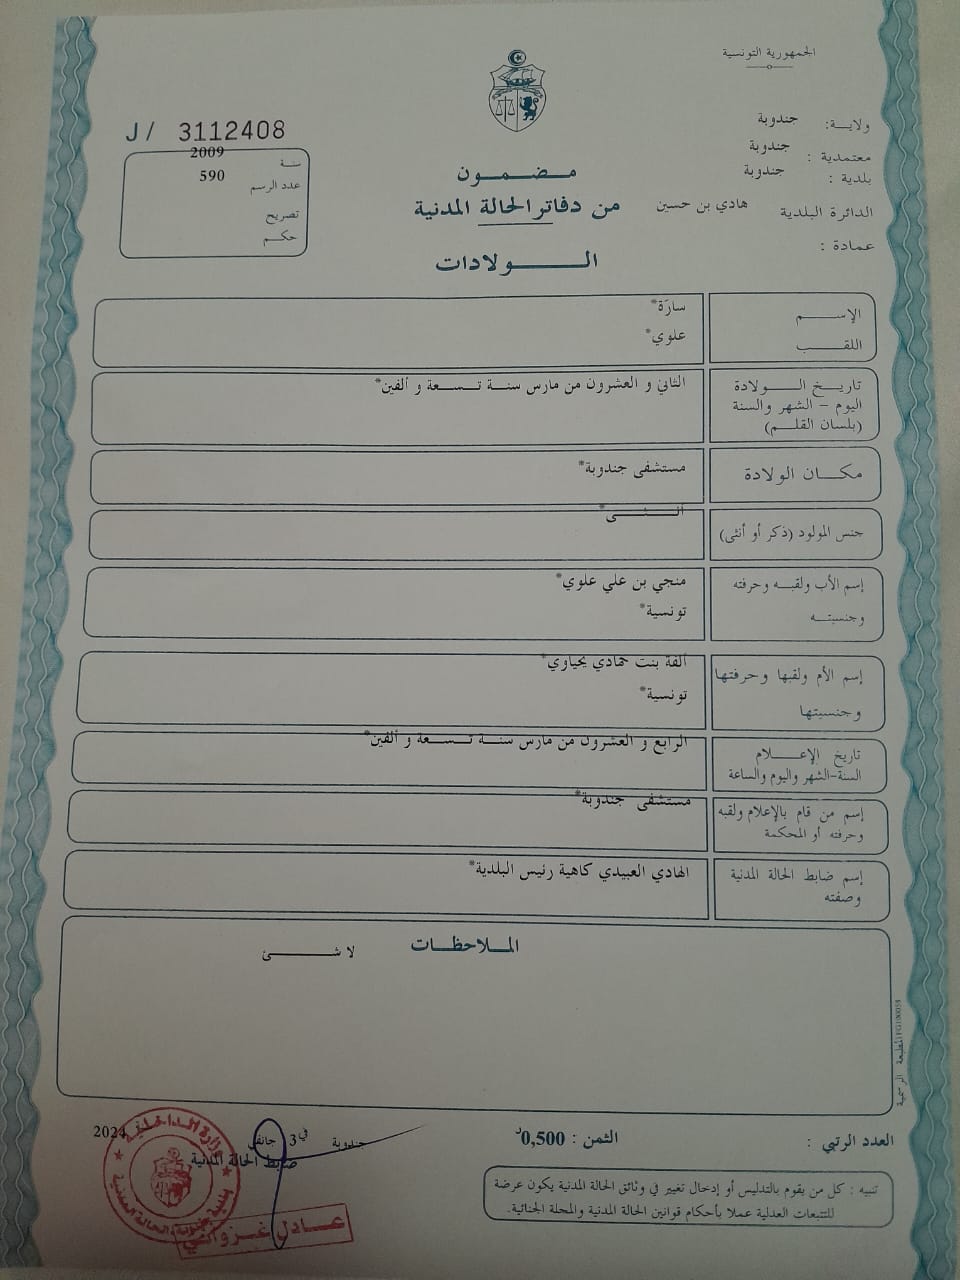 الجمهورية التونسية
ولاية: جندوبة
معتمدية : جندوبة
بلدية : جندوبة
الدائرة البلدية هادي بن حسين
عمادة :
J/ 3112408
سنة 2009
عدد الرسم 590
تصريح
حكم
مضمون
من دفاتر الحالة المدنية
الولادات
الإسم سارّة*
اللقب علوي*
تاريخ الولادة الثاني و العشرون من مارس سنة تسعة و ألفين*
اليوم – الشهر والسنة
(بلسان القلم)
مكان الولادة مستشفى جندوبة*
جنس المولود (ذكر أو أنثى) أنثى*
إسم الأب ولقبه وحرفته منجي بن علي علوي*
وجنسيته تونسية*
إسم الأم ولقبها وحرفتها ألفة بنت حمادي يحياوي*
وجنسيتها تونسية*
تاريخ الإعلام الرابع و العشرون من مارس سنة تسعة و ألفين*
السنة-الشهر واليوم والساعة
إسم من قام بالإعلام ولقبه مستشفى جندوبة*
وحرفته أو المحكمة
إسم ضابط الحالة المدنية الهادي العبيدي كاهية رئيس البلدية*
وصفته
الملاحظات
لا شئ
المطبعة الرسمية FG100058
العدد الرتبي :
الثمن : 0,500د
جندوبة في 3 جانفي 2024
ضابط الحالة المدنية
وزارة الداخلية
عادل غزواني
تنبيه : كل من يقوم بالتدليس أو إدخال تغيير في وثائق الحالة المدنية يكون عرضة
للتتبعات العدلية عملا بأحكام قوانين الحالة المدنية والمجلة الجنائية.